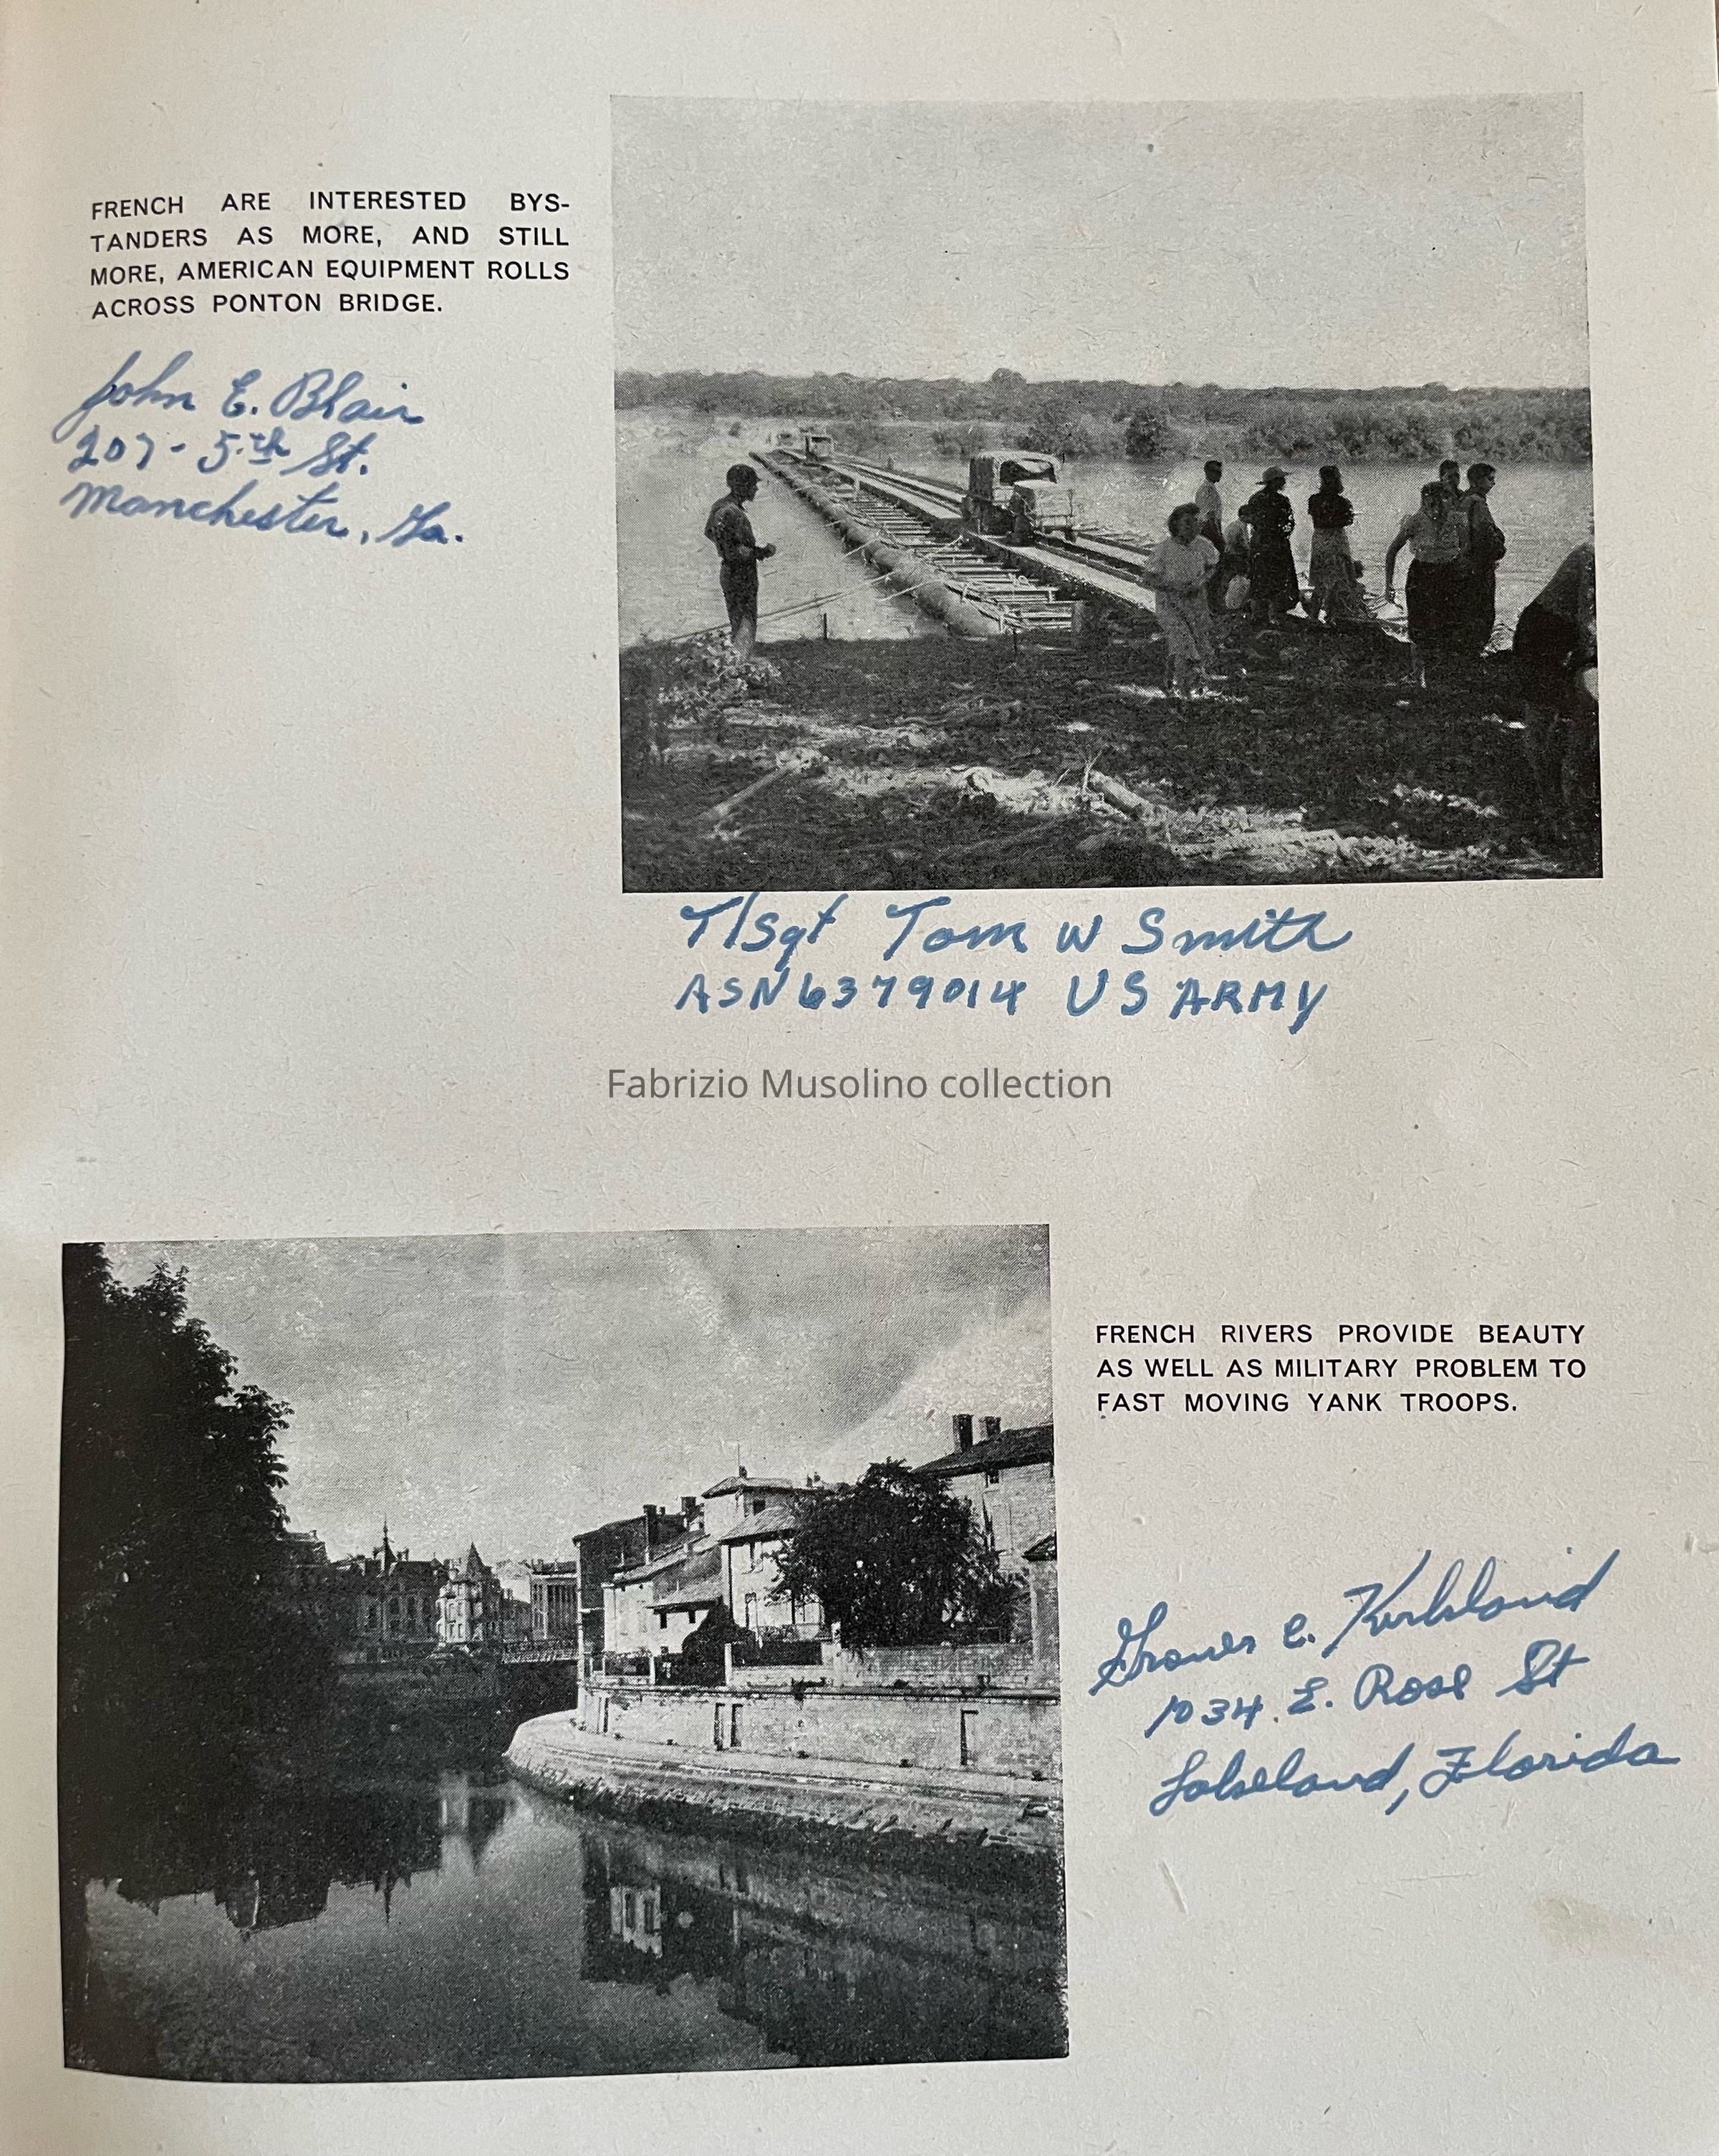 FRENCH ARE INTERESTED BYS-
TANDERS AS MORE, AND STILL
MORE, AMERICAN EQUIPMENT ROLLS
ACROSS PONTON BRIDGE.
John E. Blair
207 - 5th St.
Manchester, Ga.
T/Sgt Tom W Smith
ASN 6379014 US ARMY
Fabrizio Musolino collection
FRENCH RIVERS PROVIDE BEAUTY
AS WELL AS MILITARY PROBLEM TO
FAST MOVING YANK TROOPS.
Grover C. Kirkland
1034 E. Rose St
Lakeland, Florida